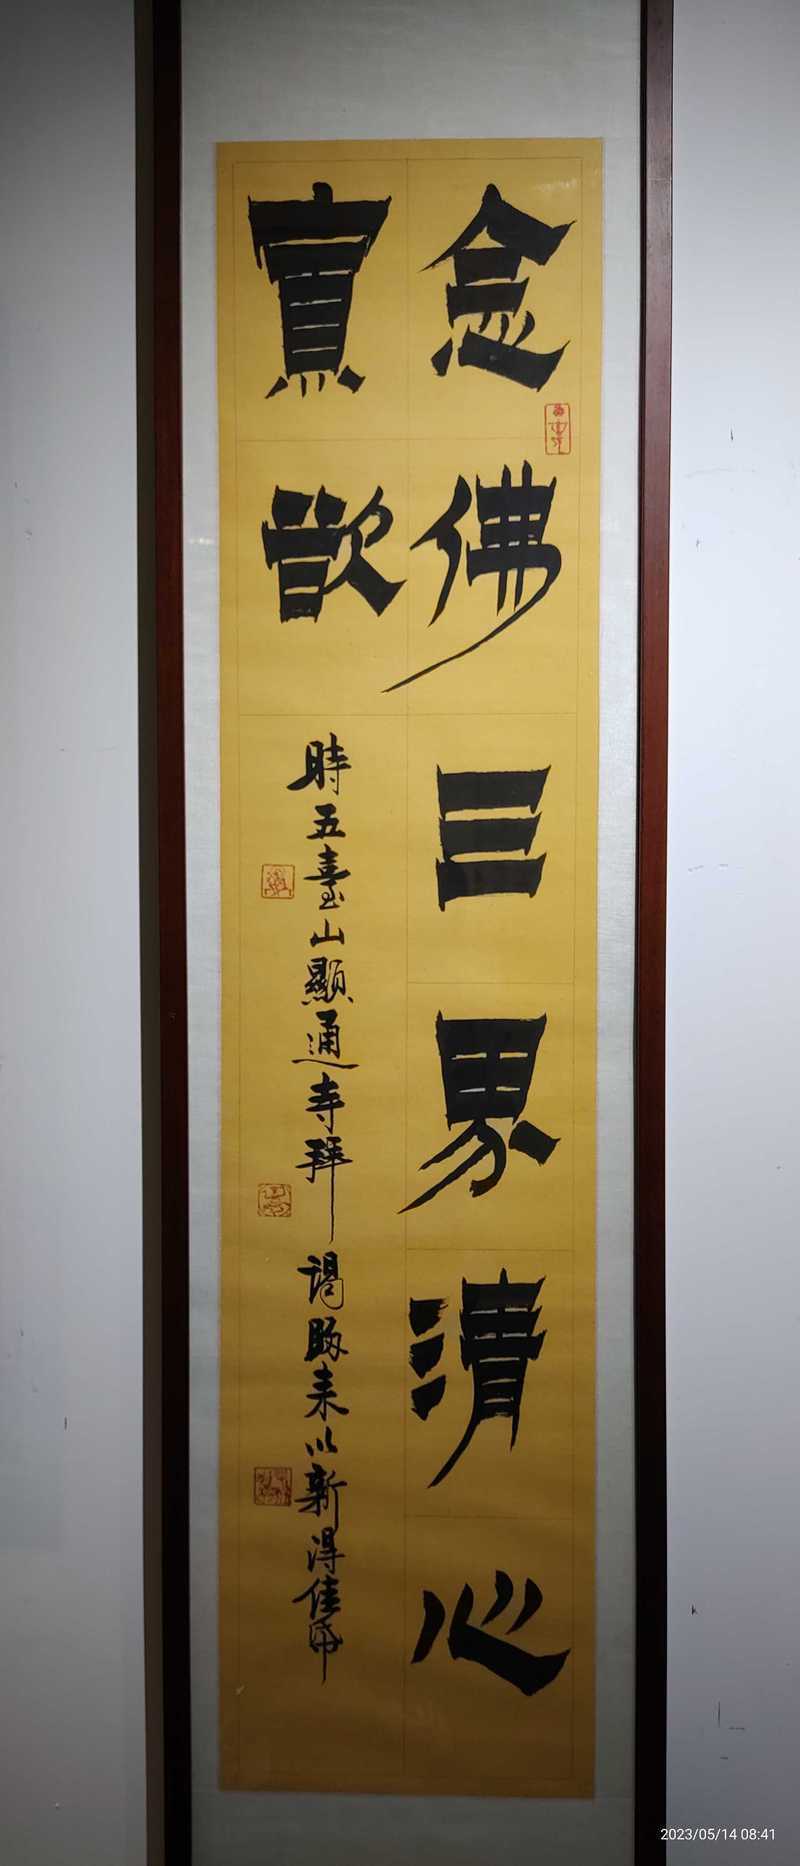 念佛三界清心
寡欲
時五臺山顯通寺拜謁歸来以新得佳帋
2023/05/14 08:41